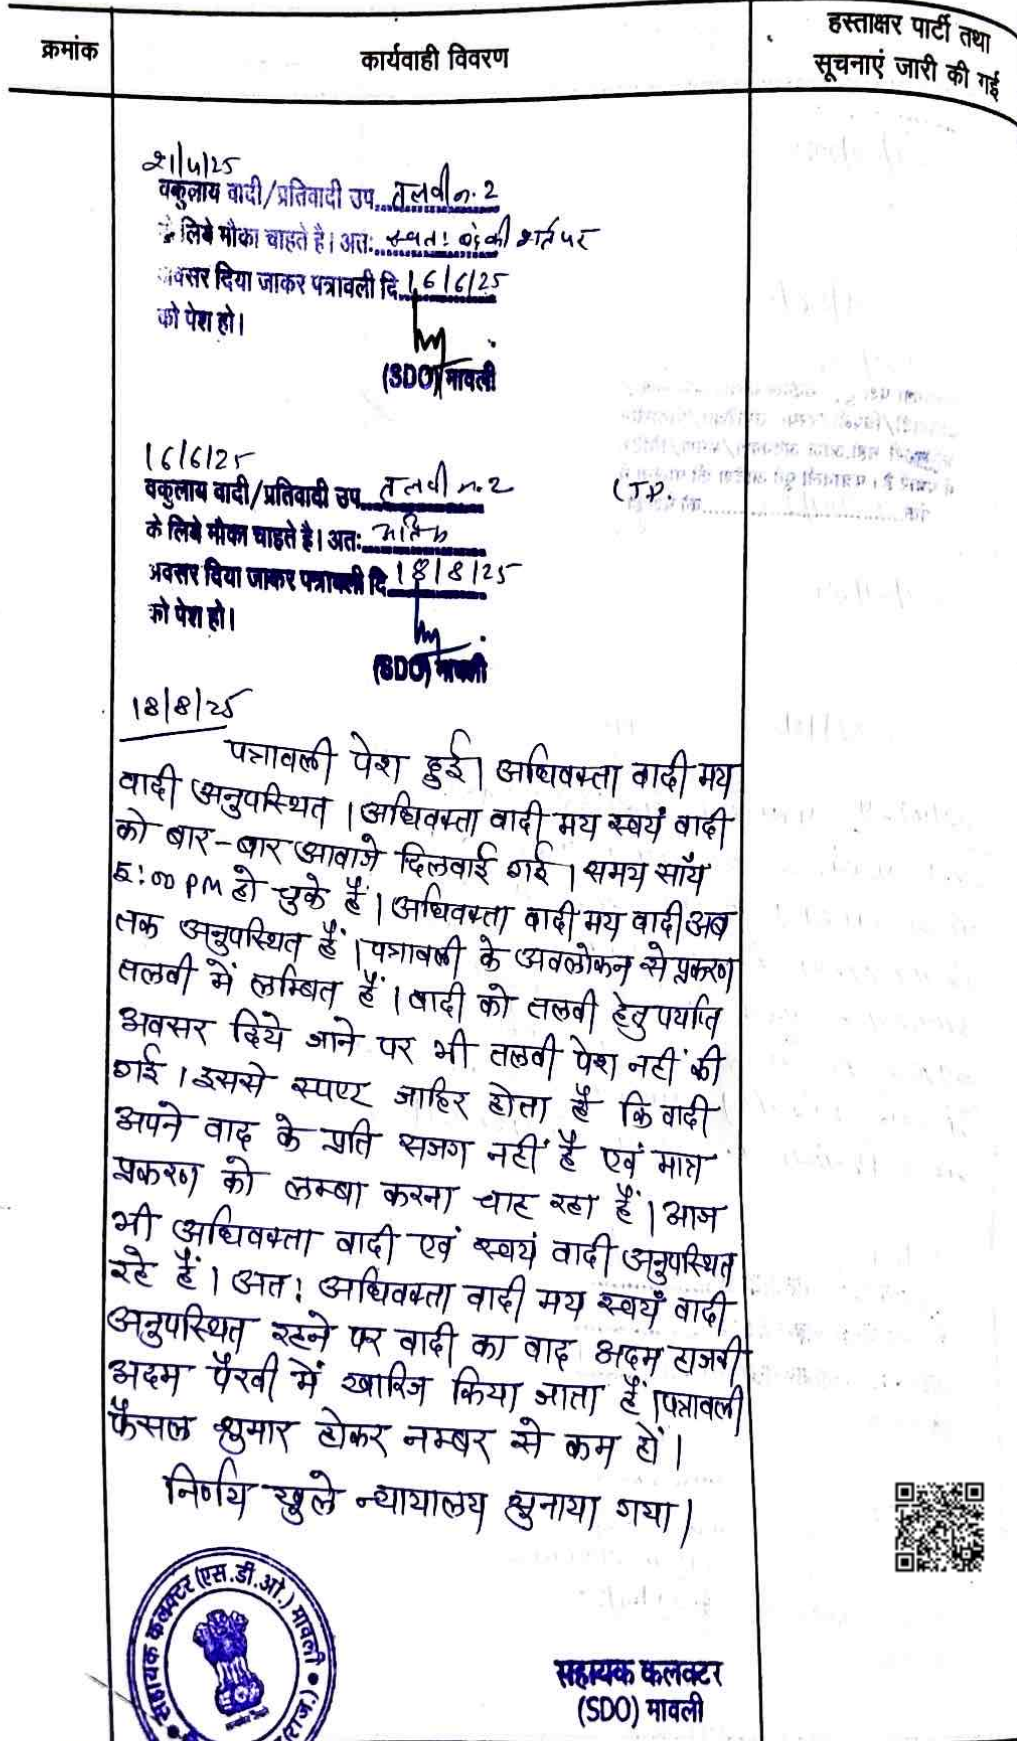 क्रमांक
कार्यवाही विवरण
हस्ताक्षर पार्टी तथा
सूचनाएं जारी की गई
21/4/25
वकुलाय वादी/प्रतिवादी उप. तलवी न. 2
के लिये मौका चाहते है। अत: की शर्त पर
अवसर दिया जाकर पत्रावली दि. 16/6/25
को पेश हो।
(SDO) मावली
16/6/25
वकुलाय वादी/प्रतिवादी उप. तलवी न. 2
के लिये मौका चाहते है। अत:
अवसर दिया जाकर पत्रावली दि. 18/8/25
को पेश हो।
(SDO) मावली
18/8/25
पत्रावली पेश हुई। अधिवक्ता वादी मय
वादी अनुपस्थित। अधिवक्ता वादी मय स्वयं वादी
को बार-बार आवाजे दिलवाई गई। समय साँय
5:00 PM हो चुके हैं। अधिवक्ता वादी मय वादी अब
तक अनुपस्थित हैं। पत्रावली के अवलोकन से प्रकरण
तलवी में लम्बित हैं। वादी को तलवी हेतु पर्याप्त
अवसर दिये जाने पर भी तलवी पेश नहीं की
गई। इससे स्पष्ट जाहिर होता है कि वादी
अपने वाद के प्रति सजग नहीं है एवं मात्र
प्रकरण को लम्बा करना चाह रहा हैं। आज
भी अधिवक्ता वादी एवं स्वयं वादी अनुपस्थित
रहे हैं। अत: अधिवक्ता वादी मय स्वयं वादी
अनुपस्थित रहने पर वादी का वाद अदम हाजरी
अदम पैरवी में खारिज किया जाता हैं। पत्रावली
फैसल शुमार होकर नम्बर से कम हों।
निर्णय खुले न्यायालय सुनाया गया।
सहायक कलक्टर (एस.डी.ओ.) मावली
(राज.)
सहायक कलक्टर
(SDO) मावली